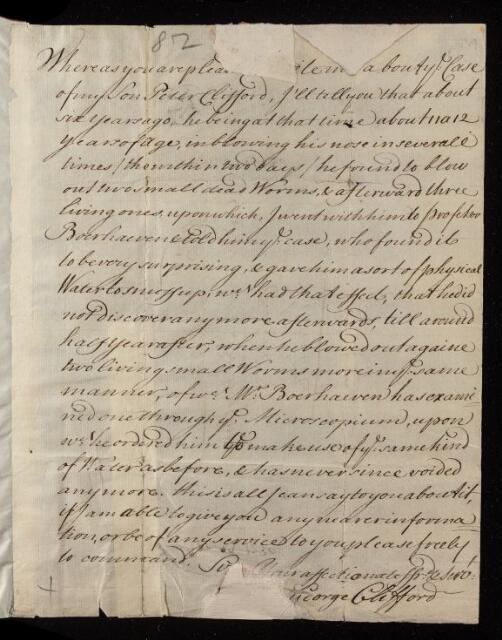 82
Whereas you are plea to me about yᵉ Case
of my Son Peter Clifford, J'll tell you that about
six Years ago, he being at that time about 11 a 12
Years of Age, in blowing his nose in severall
times / them thin two days / he found to blow
out two small dead Worms, & afterward three
living ones, upon which, J went with him to Professor
Boerhaeven & told him yᵉ case, who found it
to be very surprising, & gave him a sort of physical
Water to snuff up, wᶜʰ had that effect, that he did
not discover any more afterwards, till around
half year after, when he blowed out againe
two living small Worms more in yᵉ same
manner, of wᶜʰ Mʳ Boerhaeven has exami
ned one through yᵉ Microscopium, upon
wᶜʰ he ordered him to make use of yᵉ same kind
of Water as before, & has never since voided
any more. this is all J can say to you about it,
if J am able to give you any nearer informa
tion, or be of any service to you please freely
to command. Sir Your affectionate
George Clifford